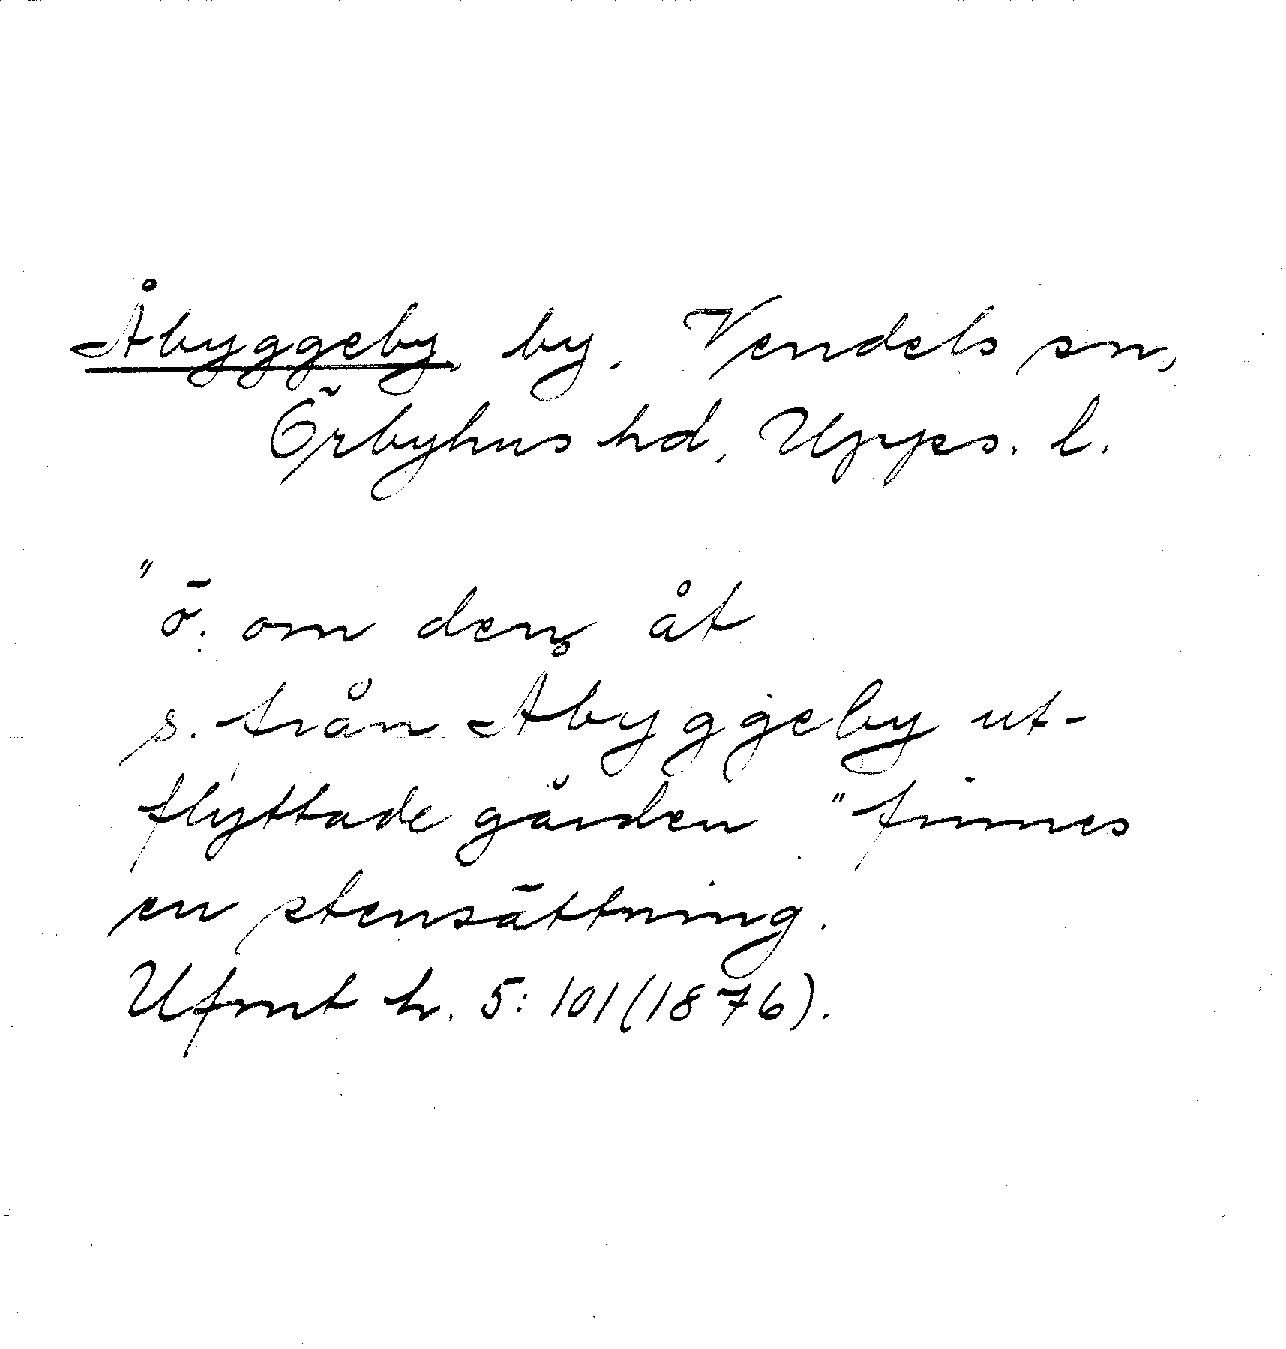 Åbyggeby by. Vendels sn,
Örbyhus hd, Upps. l.
"ö. om den åt
s. från Åbyggeby ut-
flyttade gården "finnes
en stensättning.
Ufmt h. 5:101(1876).